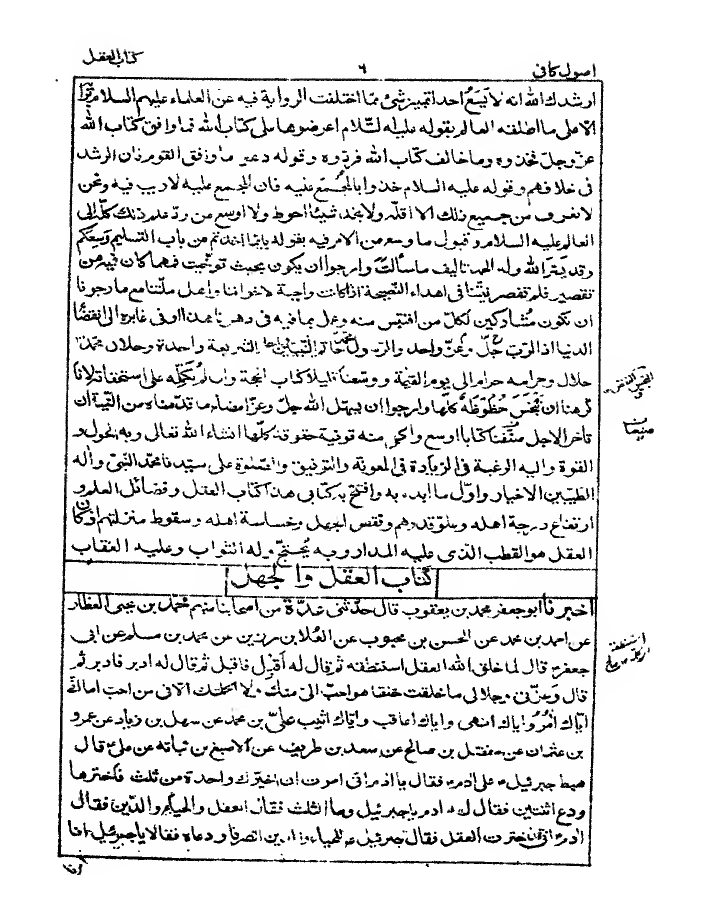 كتاب العقل
٦
اصول كافى
ارشدك الله انه لا يسع احدا تمييز شئ مما اختلفت الرواية فيه عن العلماء عليهم السلام برأيه
الا على ما اطلقه العالم بقوله عليه السلام اعرضوها على كتاب الله فما وافق كتاب الله
عز وجل فخذوه وما خالف كتاب الله فردوه وقوله دعوا ما وافق القوم فان الرشد
فى خلافهم وقوله عليه السلام خذوا بالمجمع عليه فان المجمع عليه لا ريب فيه ونحن
لا نعرف من جميع ذلك الا اقله ولا نجد شيئا احوط ولا اوسع من رد علم ذلك كله الى
العالم عليه السلام وقبول ما وسع من الامر فيه بقوله بايما اخذتم من باب التسليم وسعكم
وقد يسر الله وله الحمد تاليف ما سألت وارجو ان يكون بحيث توخيت فمهما كان فيه من
تقصير فلم تقصر نيتنا فى اهداء النصيحة اذ كانت واجبة لاخواننا واهل ملتنا مع ما رجونا
ان نكون مشاركين لكل من اقتبس منه وعمل بما فيه فى دهرنا هذا وفى غابره الى انقضاء
الدنيا اذ الرب جل وعز واحد والرسول محمد خاتم النبيين واحد والشريعة واحدة وحلال محمد
حلال وحرامه حرام الى يوم القيمة ووسعنا قليلا كتاب الحجة وان لم نكمله على استحقاقه لانا
كرهنا ان نبخس حظوظه كلها وارجو ان يسهل الله جل وعز امضاء ما قدمناه من النية ان
تأخر الاجل صنفنا كتابا اوسع واكمل منه نوفيه حقوقه كلها انشاء الله تعالى وبه الحول و
القوة واليه الرغبة فى الزيادة فى المعونة والتوفيق والصلوة على سيدنا محمد النبى وآله
الطيبين الاخيار واول ما ابدء به وافتتح به كتابى هذا كتاب العقل وفضائل العلم و
ارتفاع درجة اهله وعلو قدرهم ونقص الجهل وخساسة اهله وسقوط منزلتهم اذ كان
العقل هو القطب الذى عليه المدار وبه يحتج وله الثواب وعليه العقاب
كتاب العقل والجهل
اخبرنا ابو جعفر محمد بن يعقوب قال حدثنى عدة من اصحابنا منهم محمد بن يحيى العطار
عن احمد بن محمد عن الحسن بن محبوب عن العلا بن رزين عن محمد بن مسلم عن ابى
جعفر قال لما خلق الله العقل استنطقه ثم قال له اقبل فاقبل ثم قال له ادبر فادبر ثم
قال وعزتى وجلالى ما خلقت خلقا هو احب الى منك ولا اكملتك الا فى من احب اما انى
اياك امر واياك انهى واياك اعاقب واياك اثيب على بن محمد عن سهل بن زياد عن عمرو
بن عثمان عن مفضل بن صالح عن سعد بن طريف عن الاصبغ بن نباته عن على قال
هبط جبرئيل على ادم فقال يا ادم انى امرت ان اخيرك واحدة من ثلث فاخترها
ودع اثنتين فقال له ادم يا جبرئيل وما الثلث فقال العقل والحياء والدين فقال
ادم انى اخترت العقل فقال جبرئيل للحياء والدين انصرفا ودعاه فقالا يا جبرئيل انا